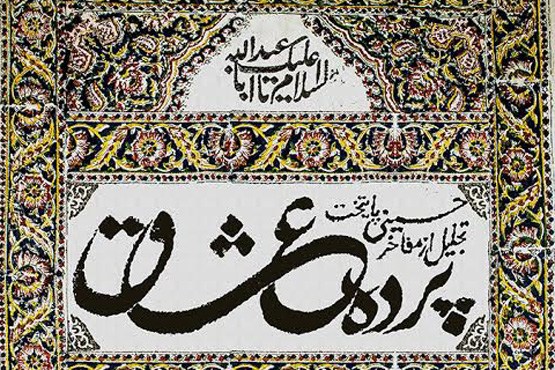 السلام علیک یا اباعبدالله
تجلیل از مفاخر حسینی پایتخت
پرده عشاق